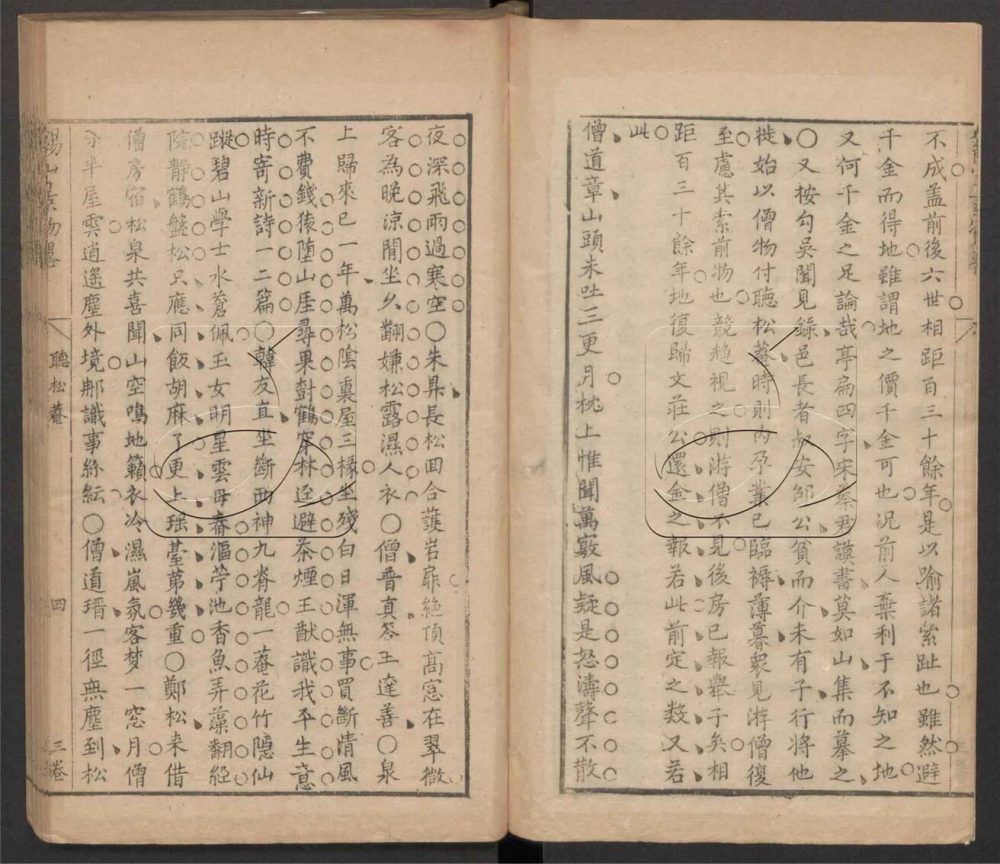 不成盖前後六世相距百三十餘年是以喻諾築趾也雖然避
千金而得地雖謂地之價千金可也况前人棄利于不知之地
又何千金之足論哉亭扁四字宋蔡君謨書莫如山集而摹之
〇又桉勾吳聞見錄邑長者安邹公貧而介未有子行將他
徙始以僧物付聴松菴時則內孕業已臨褥薄暮衆見游僧復
至慮其索前物也競趋視之則游僧不見後房已報舉子矣相
距百三十餘年地復歸文荘公還金之報若此前定之数又若
此
僧道章山頭未吐三更月枕上惟聞萬竅風疑是怒濤聲不散
夜深飛雨過寒空〇朱昇長松回合護岩扉絶頂髙窓在翠微
客為晚涼閒坐久翻嫌松露濕人衣〇僧普真荅王達善〇泉
上歸來已一年萬松陰裏屋三椽坐殘白日渾無事買斷清風
不費錢猿陸山厓尋果對鶴穿林迳避茶煙王猷識我平生意
時寄新詩一二篇〇韓友直坐斷西神九脊龍一菴花竹隱仙
蹤碧山學士水蒼佩玉女明星雲母舂漚苧池香魚弄藻翻経
院静鶴盤松只應同飯胡麻了更上瑶䑓第幾重〇鄭松来借
僧房宿松泉共喜聞山空鳴地籟衣冷濕嵐氛客梦一窓月僧
分半屋雲逍遥塵外境那識事紛紜〇僧道瑨一徑無塵到松
錫山景物畧
聽松菴
四
三卷